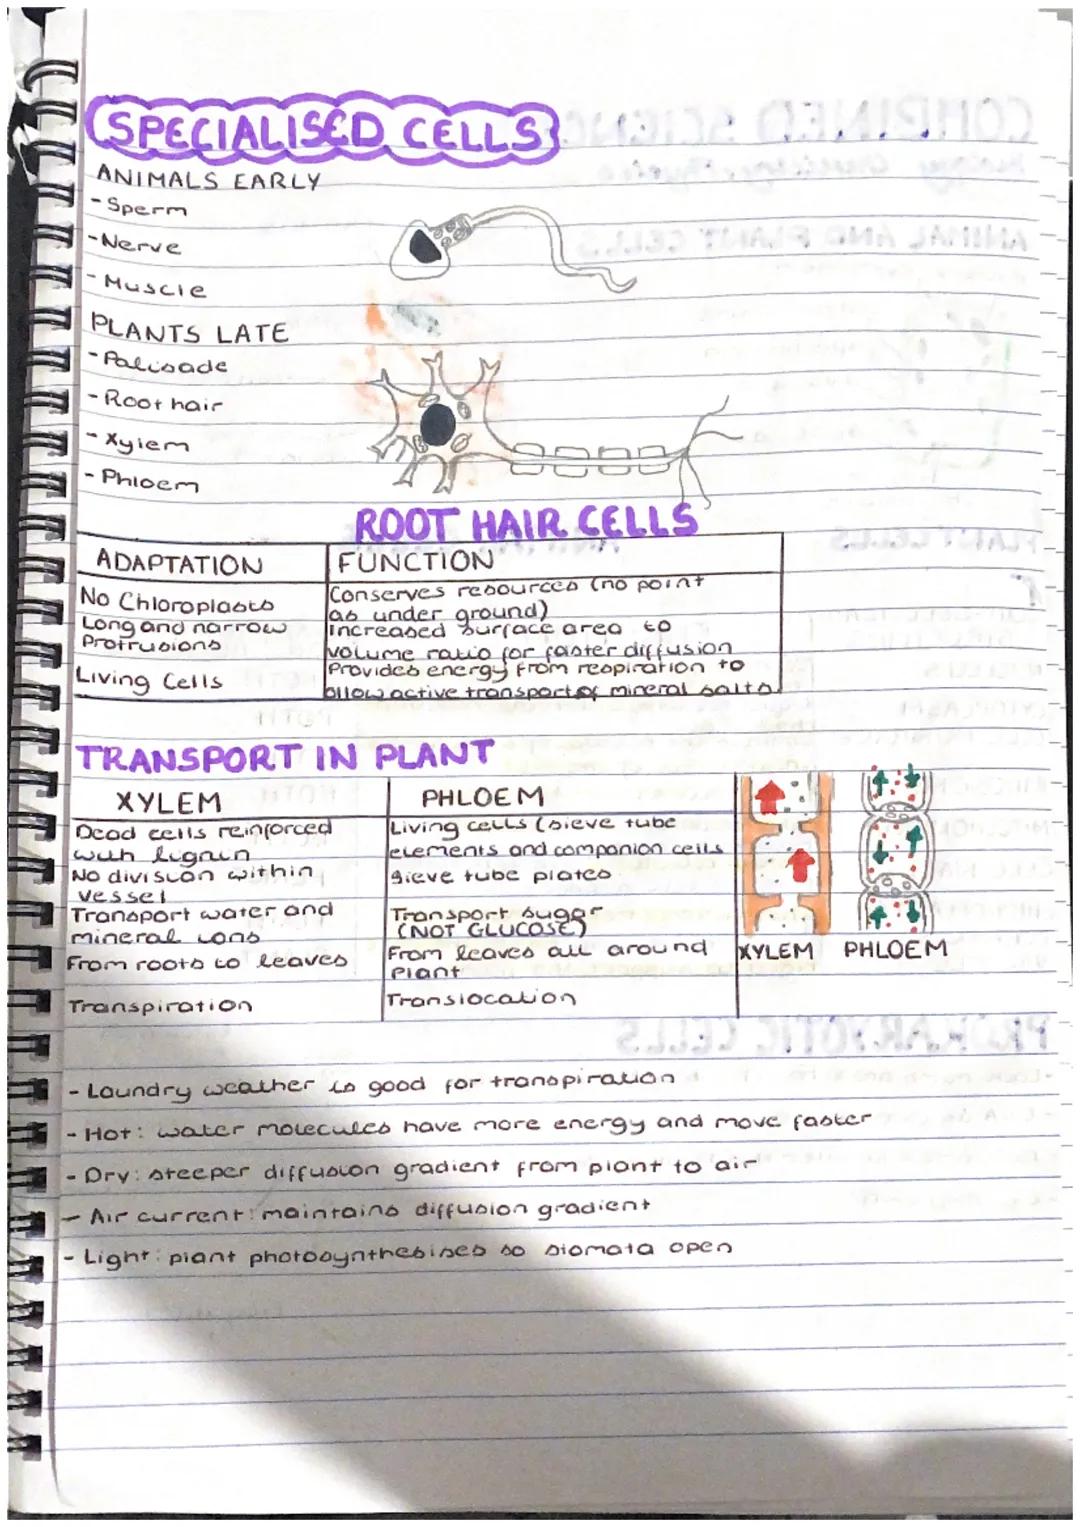 SPECIALISED CELLS
ANIMALS EARLY
- Sperm
- Nerve
- Muscle
PLANTS LATE
- Palisade
- Root hair
- Xylem
- Phloem
ROOT HAIR CELLS
ADAPTATION
FUNCTION
No Chloroplasts
Conserves resources (no point
as under ground)
Long and narrow
Protrusions
increased surface area to
volume ratio for faster diffusion
Living Cells
Provides energy from respiration to
allow active transport of mineral salts
TRANSPORT IN PLANT
XYLEM
PHLOEM
Dead cells reinforced
with lignin
Living cells (sieve tube
elements and companion cells
No division within
vessel
Sieve tube plates
Transport water and
mineral ions
Transport sugar
(NOT GLUCOSE)
From roots to leaves
From leaves all around
Plant
Transpiration
Translocation
XYLEM PHLOEM
- Laundry weather is good for transpiration
- Hot: water molecules have more energy and move faster
- Dry: steeper diffusion gradient from plant to air
- Air current: maintains diffusion gradient
- Light: plant photosynthesises so stomata open
COMBINED SCIENC
ANIMAL AND PLANT CELLS
PLANT CELLS
PROKARYOTIC CELLS